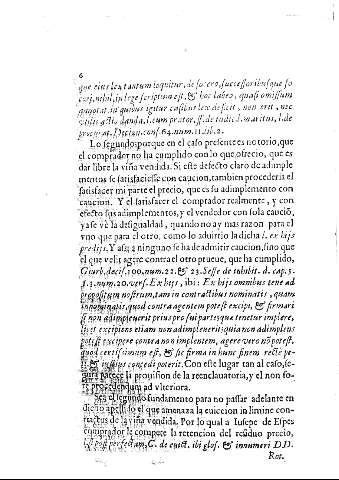 6
que eius lex tantum loquitur, de socero, successoribusque so
ceri, nihil, in lege scriptum est, & hoc labeo, quasi omissum
annotat, in quibus igitur casibus lex deficit, non erit, nec
vtilis actio danda, l. cum prator, ff. de iudic. l. maritus, l. de
procurat. Decian. cons. 64. num. 11. lib. 2.
Lo segundo, porque en el caso presente es notorio, que
el comprador no ha cumplido con lo que ofrecio, que es
dar libre la viña vendida. Si este defecto claro de adimple
mento se satisfaciesse con caucion, tambien procederia el
satisfacer mi parte el precio, que es su adimplemento con
caucion. Y el satisfacer el comprador realmente, y con
efecto sus adimplementos, y el vendedor con sola caucio,
ya se vè la desigualdad, quando no ay mas razon para el
vno que para el otro, como lo aduirtio la dicha l. ex his
prædijs. Y assi à ninguno se ha de admitir caucion, sino que
el que velit agere contra el otro prueue, que ha cumplido,
Giurb. decis. 100. num. 22. & 23. Sesse de inhibit. d. cap. 5.
§. 3. num. 20. vers. Ex his, ibi: Ex his omnibus tene ad
propositum nostrum, tam in contractibus nominatis, quam
innominatis, quod contra agentem potest excipi, & firmari
si non adimpleuerit prius pro sui parte que tenetur implere,
ibi et excipiens etiam non adimpleuerit; quia non adimplens
potest excipere contra non implentem, agere vero nõ potest,
quod certissimum est, & sic firma in hunc finem recte pe-
ti, & iustius concedi poterit. Con este lugar tan al caso, se-
gura parece la prouision de la reenclauatoria, y el non fo-
re procedendum ad vlteriora.
Sea el segundo fundamento para no passar adelante en
dicho apellido el que amenaza la euiccion in limine con-
tractus de la viña vendida. Por lo qual a Iusepe de Espes
comprador le compete la retencion del residuo precio,
vt post perfectam, C. de euict. ibi glos. & innumeri DD.
Rot.